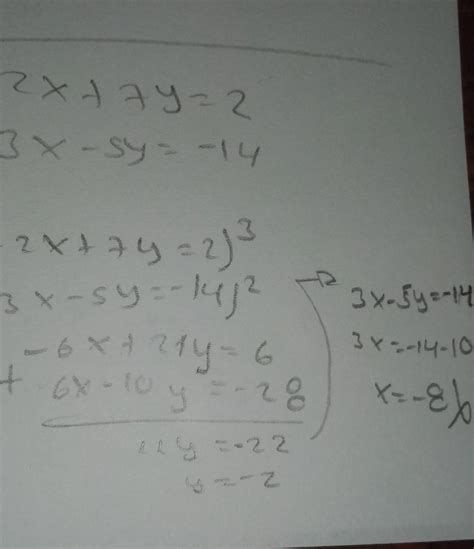 2x+7y=2
3x-5y=-14
-2x+7y=2)3
3x-5y=-14)2
-6x+21y=6
+ 6x-10y=-28
11y=-22
y=-2
3x-5y=-14
3x=-14-10
x=-8